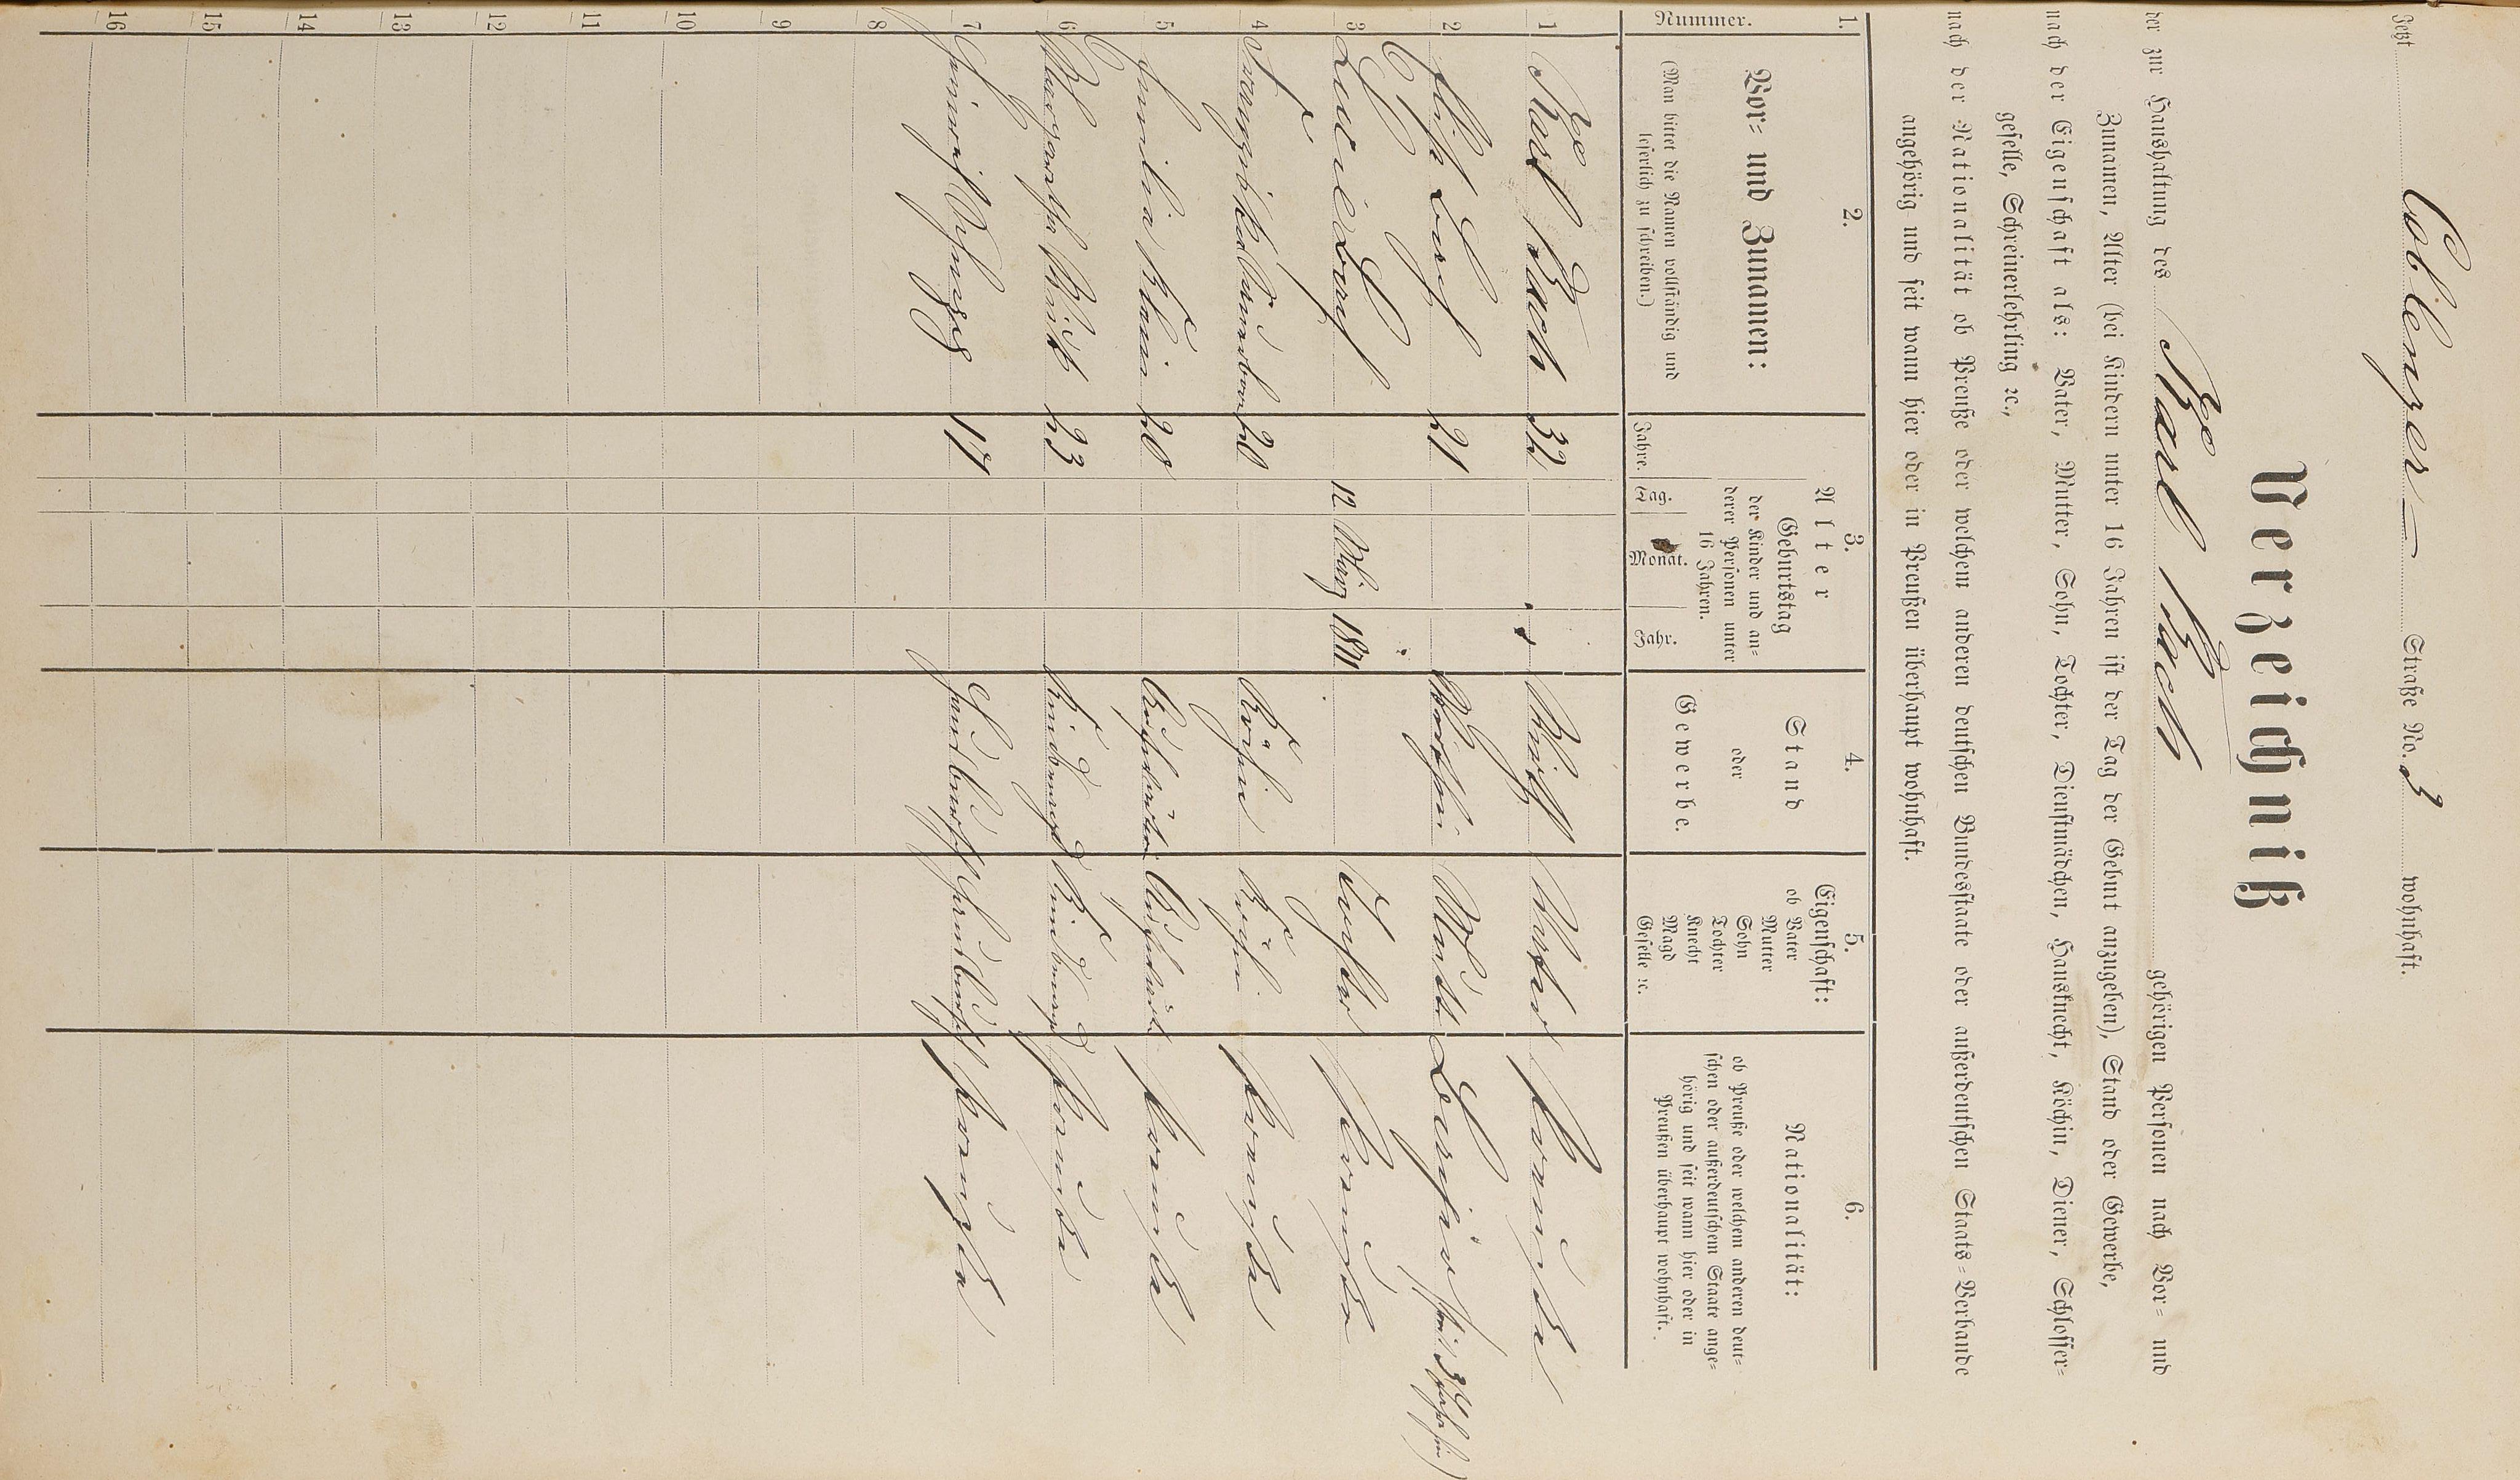 Jetzt Coblenzer- Straße No. 3 wohnhaft.
Verzeichniß
der zur Haushaltung des Karl Bach gehörigen Personen nach Vor- und
Zunamen, Alter (bei Kindern unter 16 Jahren ist der Tag der Geburt anzugeben), Stand oder Gewerbe,
nach der Eigenschaft als: Vater, Mutter, Sohn, Tochter, Dienstmädchen, Hausknecht, Köchin, Diener, Schlosser-
geselle, Schreinerlehrling ꝛc.,
nach der Nationalität ob Preuße oder welchem anderen deutschen Bundesstaate oder außerdeutschen Staats-Verbande
angehörig und seit wann hier oder in Preußen überhaupt wohnhaft.
1. 2. 3. 4. 5. 6.
Nummer.
Vor- und Zunamen:
(Man bittet die Namen vollständig und
leserlich zu schreiben.)
Alter
Geburtstag
der Kinder und an-
derer Personen unter
16 Jahren.
Jahre. Tag. Monat. Jahr.
Stand
oder
Gewerbe.
Eigenschaft:
ob Vater
Mutter
Sohn
Tochter
Knecht
Magd
Geselle ꝛc.
Nationalität:
ob Preuße oder welchem anderen deut-
schen oder außerdeutschem Staate ange-
hörig und seit wann hier oder in
Preußen überhaupt wohnhaft.
1 Karl Bach 32 Wirth Vater Preuße
2 Elise Bach 21 Wirthin Mutter
3 12 März 1871 Tochter Preuße
4 20 Köchin Köchin Preuße
5 Emilie Klein 20 Preuße
6 Margaretha 23 Kindermagd Kindermagd Preuße
7 Heinrich 17 Hausbursch Hausbursch Preuße
8
9
10
11
12
13
14
15
16